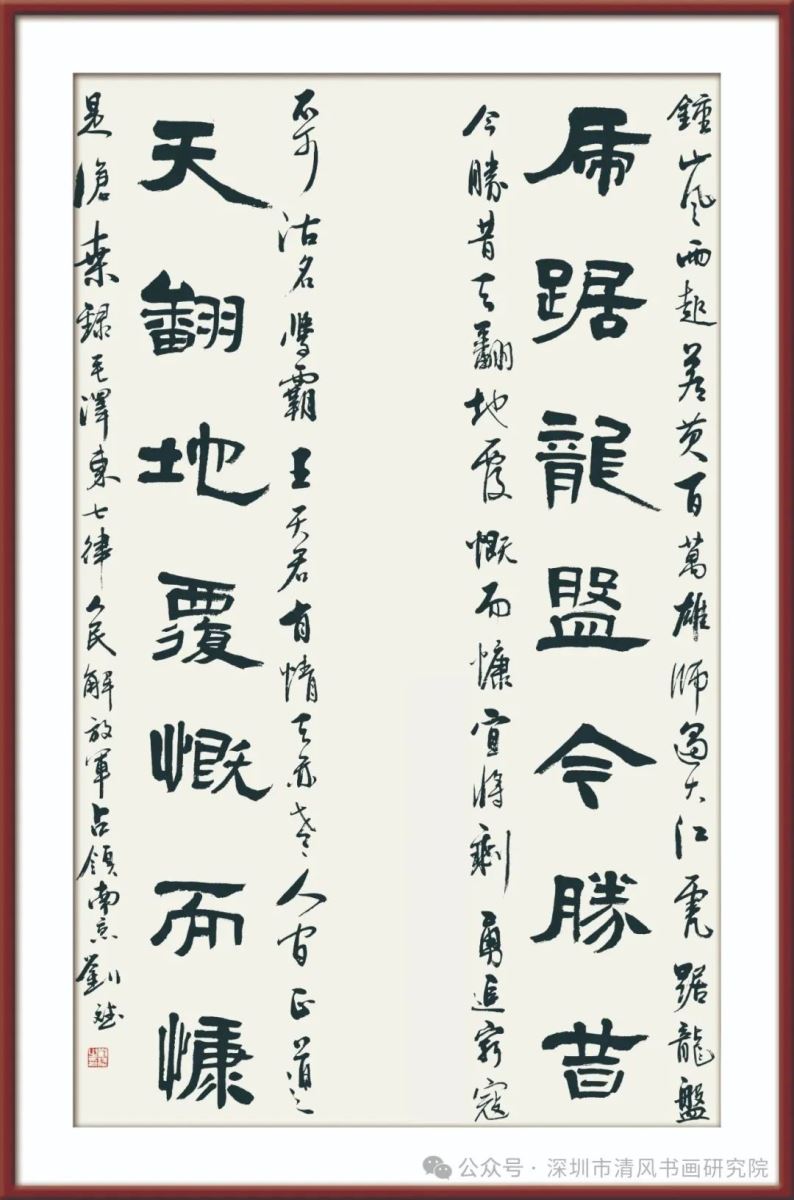 鍾山風雨起蒼黃百萬雄師過大江虎踞龍盤
虎踞龍盤今勝昔
今勝昔天翻地覆慨而慷宜將剩勇追窮寇
不可沽名學霸王天若有情天亦老人間正道
天翻地覆慨而慷
是滄桑錄毛澤東七律人民解放軍占領南京劉
公众号·深圳市清风书画研究院